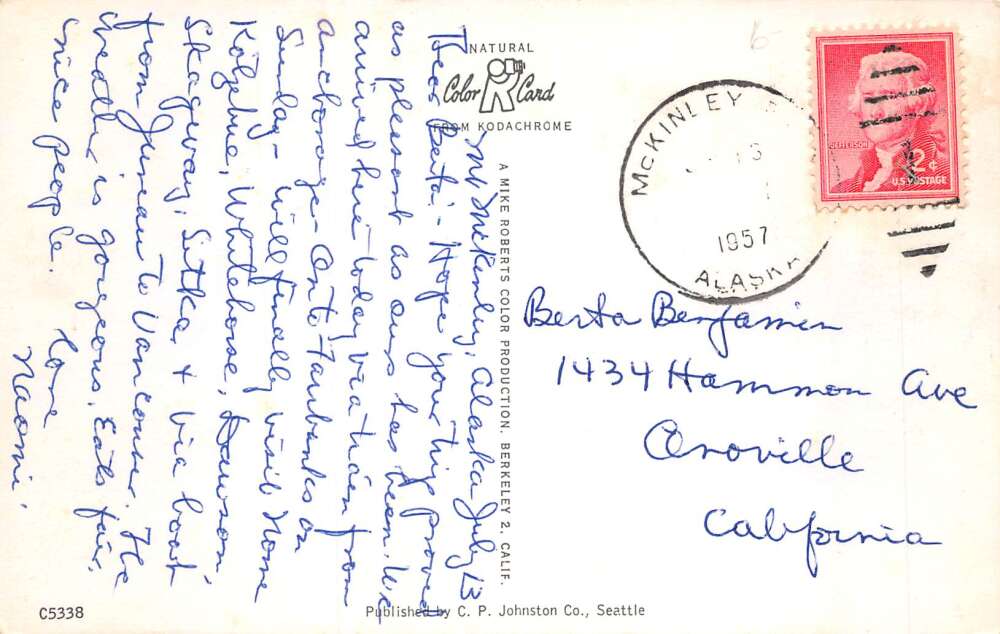 Mt McKinley, Alaska July 13
Dear Berta:- Hope your trip proved
as pleasant as ours has been. We
arrived here today via train from
Anchorage - On to Fairbanks on
Sunday - Will finally visit Nome
Kotzebue, Whitehorse, Dawson,
Skagway, Sitka, + via boat
from Juneau to Vancouver. The
weather is gorgeous, Eats fair,
nice people.
Love
Naomi.
NATURAL
Color Card
FROM KODACHROME
A MIKE ROBERTS COLOR PRODUCTION. BERKELEY 2. CALIF.
MCKINLEY
13
1957
ALASKA
JEFFERSON
2¢
U.S. POSTAGE
Berta Benjamin
1434 Hammon Ave
Oroville
California
C5338
Published by C. P. Johnston Co., Seattle